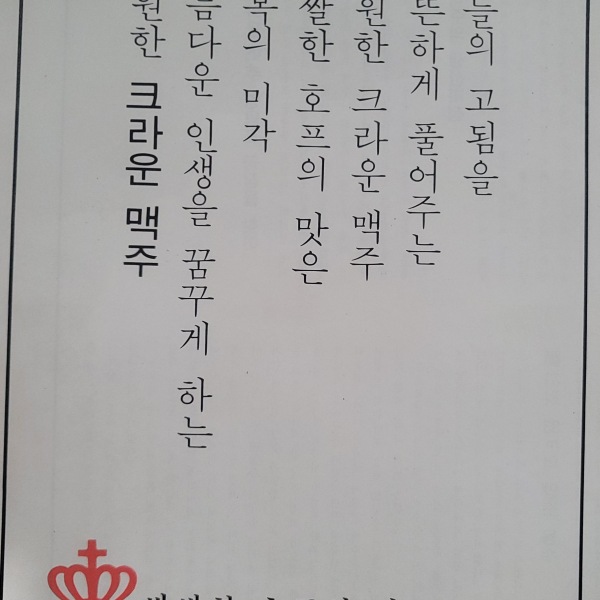 들의 고됨을
뜬하게 풀어주는
원한 크라운 맥주
쌀한 호프의 맛은
복의 미각
름다운 인생을 꿈꾸게 하는
원한 크라운 맥주